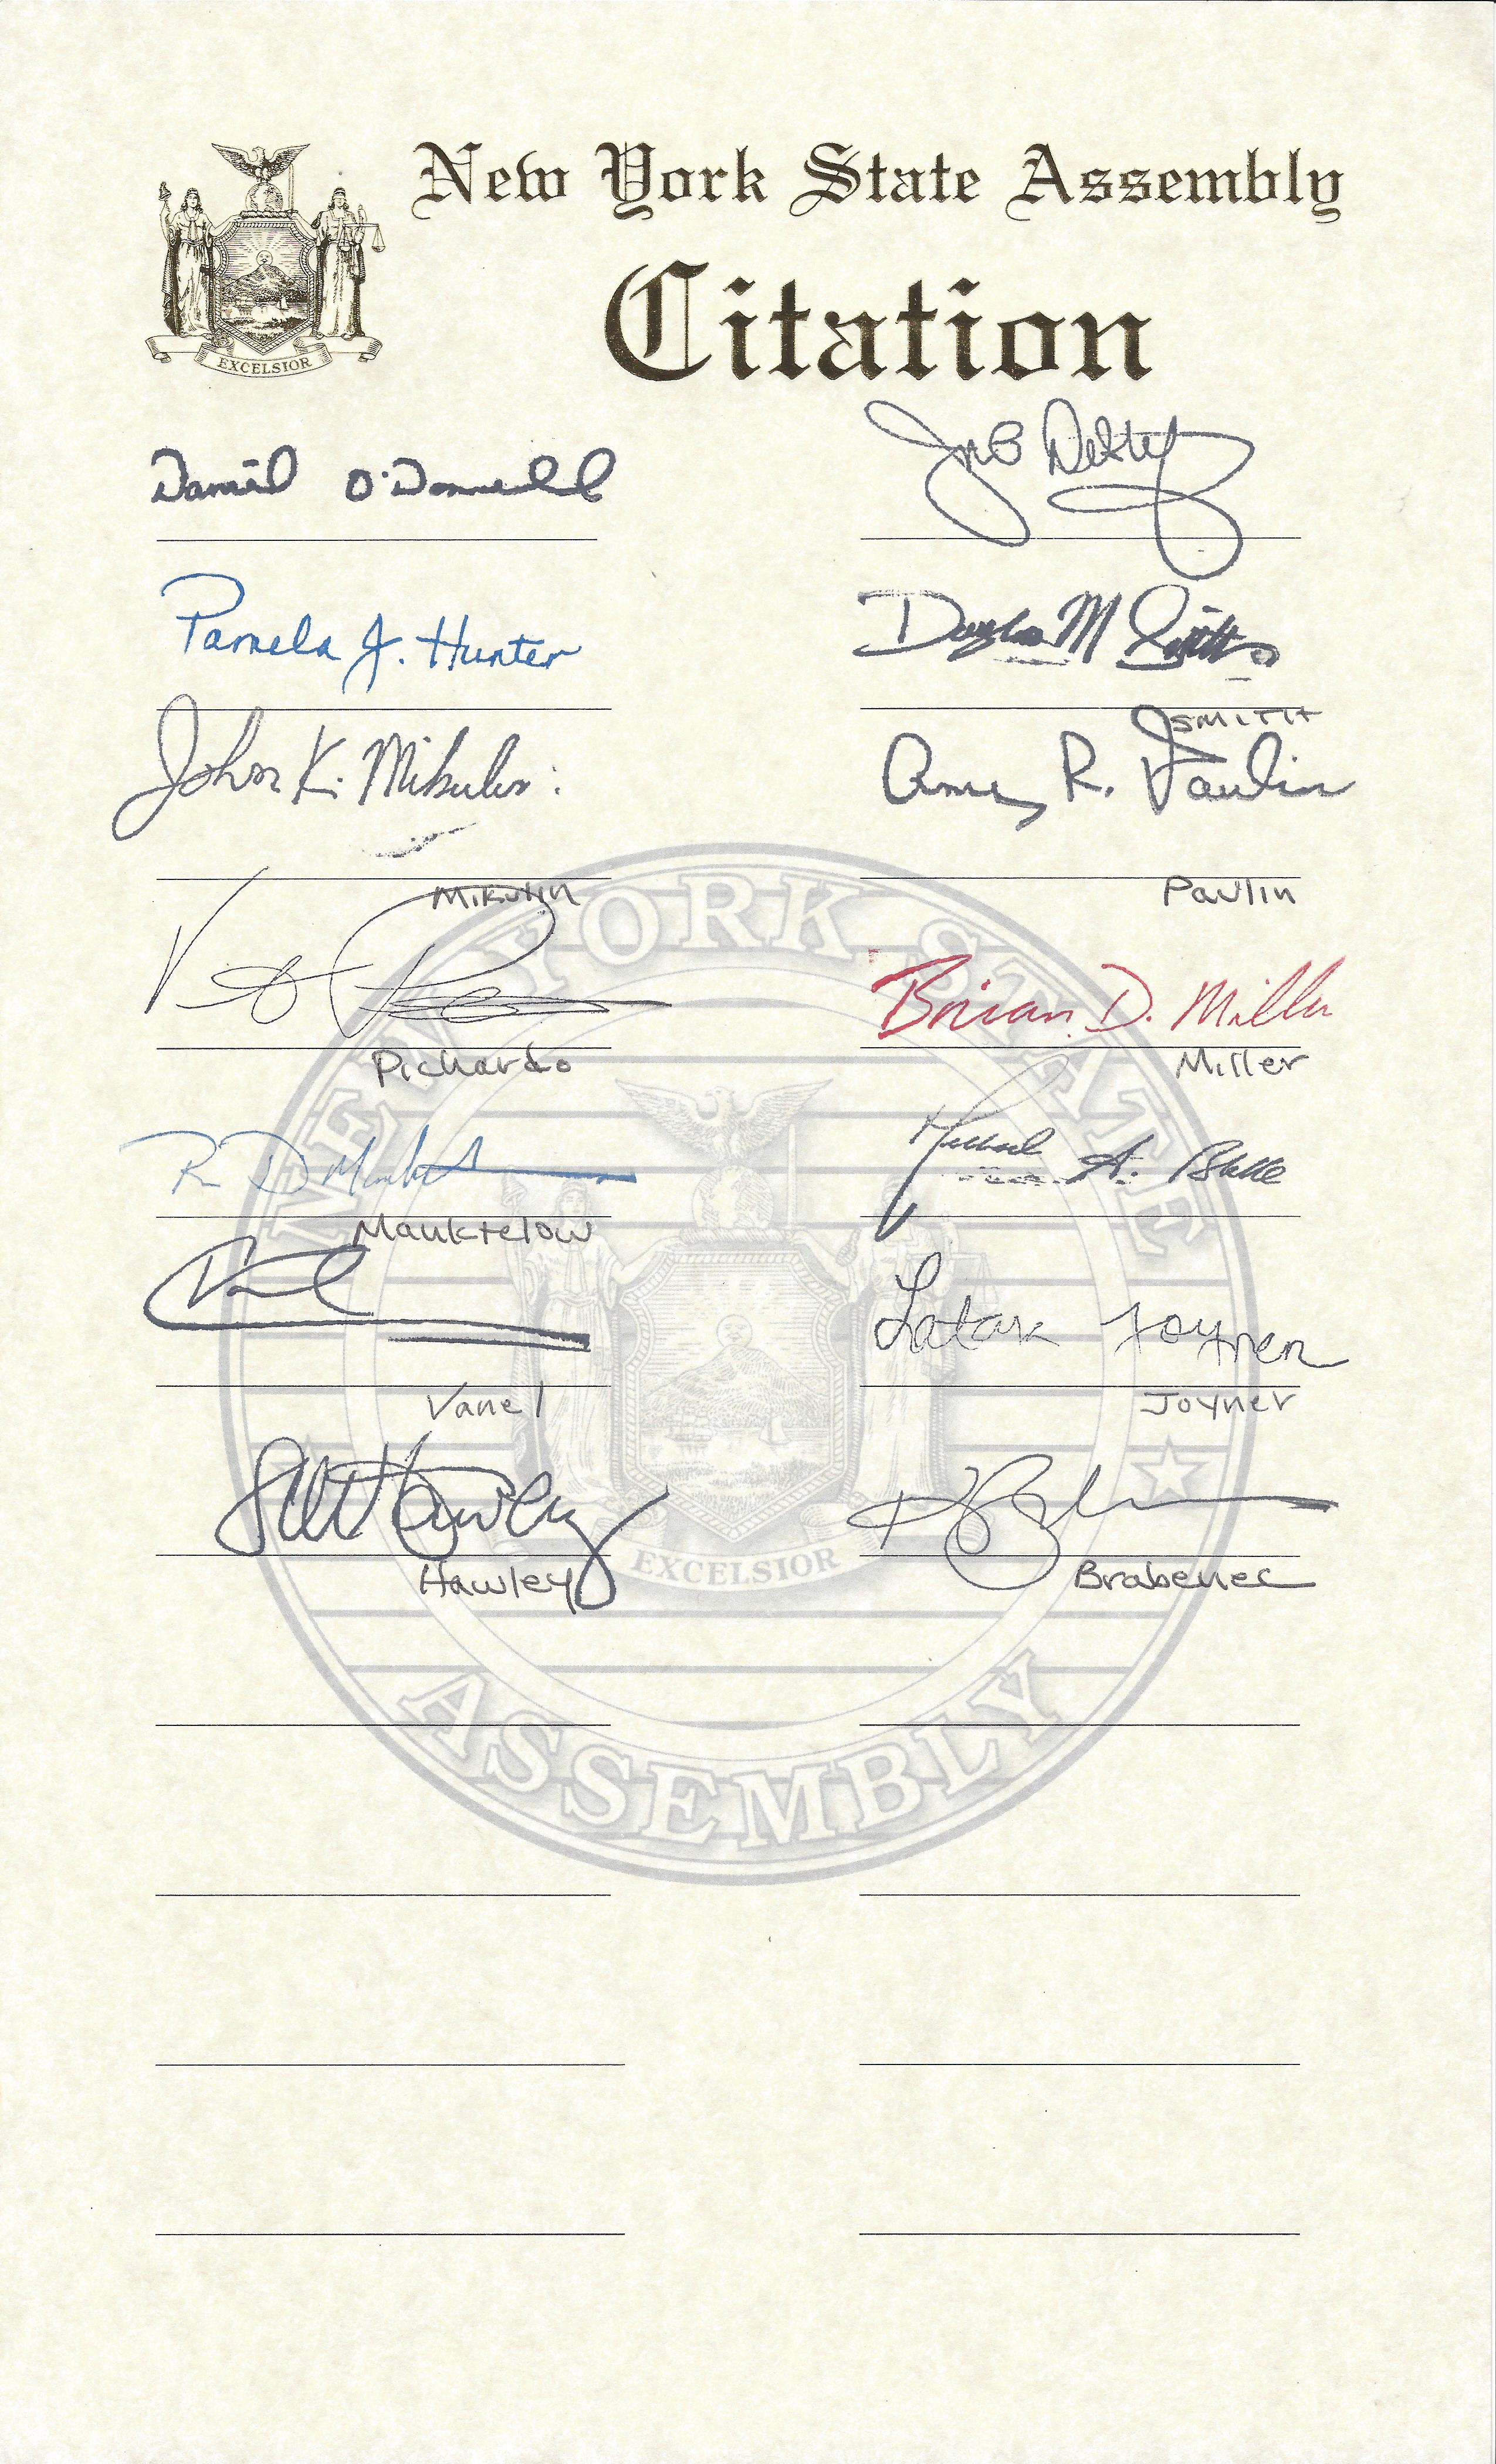 New York State Assembly
Citation
EXCELSIOR
Daniel O'Donnell
Pamela J. Hunter
Douglas M Smith
SMITH
John K. Mikulin
Amy R. Paulin
Mikulin
Paulin
Brian D. Miller
Pichardo
Miller
Michael A. Blake
Manktelow
Vanel
Latoya Joyner
Vanel
Joyner
Hawley
Hawley
Brabenec
NEW YORK STATE
EXCELSIOR
ASSEMBLY